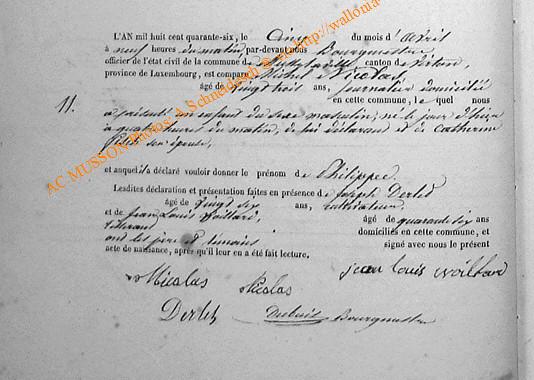 L'AN mil huit cent quarante-six, le Cinq du mois d'Avril
à neuf heures du matin, par-devant nous Bourgmestre
officier de l'état civil de la commune de canton de Virton,
province de Luxembourg, est comparu Michel Nicolas,
âgé de vingt trois ans, journalier domicilié
11. en cette commune, lequel nous
a présenté un enfant du sexe masculin, né le jour d'hier
à quatre heures du matin, de lui déclarant et de Catherine
son épouse,
et auquel il a déclaré vouloir donner le prénom de Philippe.
Lesdites déclaration et présentation faites en présence de Joseph Derlet
âgé de vingt six ans, cultivateur,
et de Jean Louis Woillard, âgé de quarante six ans
domiciliés en cette commune, et
ont les père et témoins signé avec nous le présent
acte de naissance, après qu'il leur en a été fait lecture.
Nicolas Nicolas jean louis woillard
Derlet Bourgmestre
AC MUSSON Photos A.Schneideesch & ee.http://wallonia